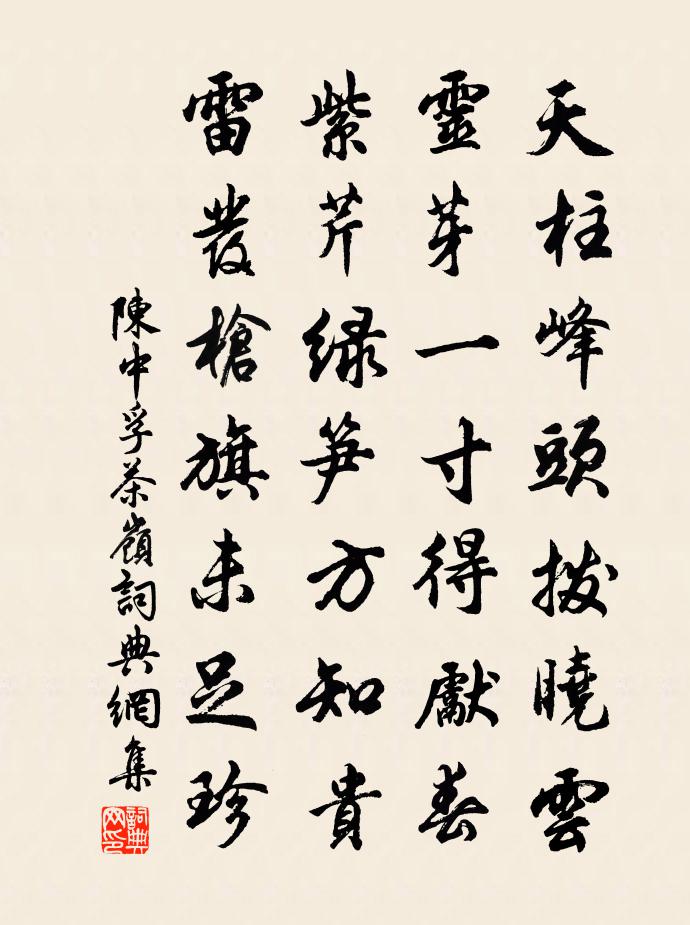 天柱峰頭撥曉雲
靈芽一寸得獻春
紫芹緑笋方知貴
雷發槍旗未足珍
陳中孚茶嶺詞典網集
詞典網印